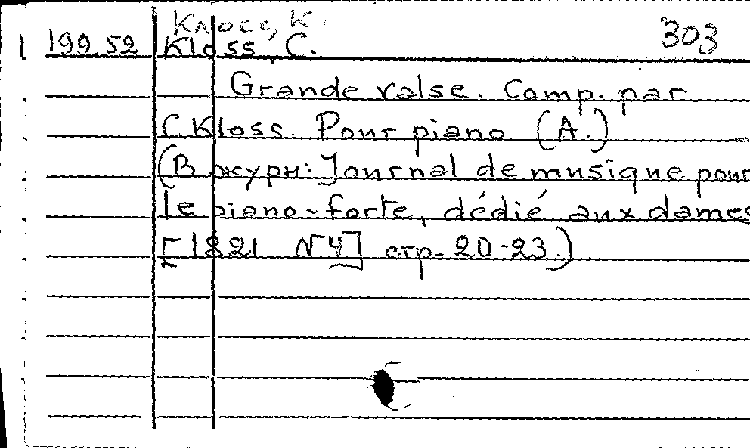 Клосс, К. 303
19952 Kloss, C.
Grande valse. Comp. par
C Kloss. Pour piano (A.)
(В журн: Journal de musique pour
le piano-forte, dédié aux dames
[1821 N 4] стр. 20-23.)